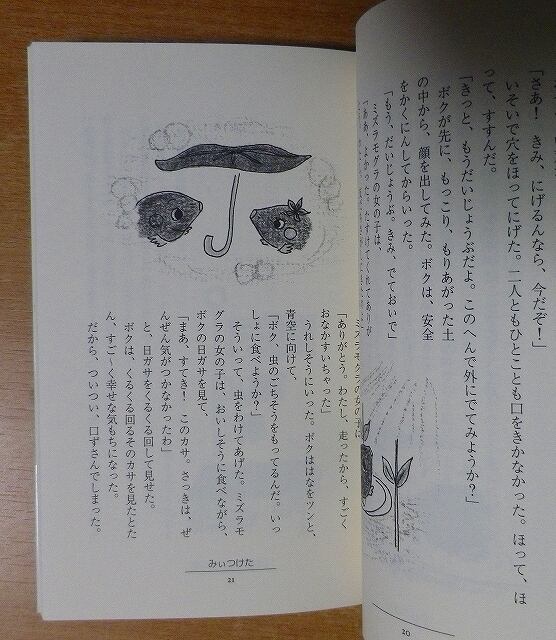 「さあ！　きみ、にげるんなら、今だぞ！」
いそいで穴をほってにげた。二人ともひとことも口をきかなかった。ほって、ほ
って、すすんだ。
「きっと、もうだいじょうぶだよ。このへんで外にでてみようか？」
ボクが先に、もっこり、もりあがった土
の中から、顔を出してみた。ボクは、安全
をかくにんしてからいった。
「もう、だいじょうぶ。きみ、でておいで」
ミズラモグラの女の子は、
「ああ、よかった。たすけてくれてありが
20
ミズラモグラの女の子は
「ありがとう。わたし、走ったから、すごく
おなかすいちゃった」
うれしそうにいった。ボクははなをツンと、
青空に向けて、
「ボク、虫のごちそうをもってるんだ。いっ
しょに食べようか？」
そういって、虫をわけてあげた。ミズラモ
グラの女の子は、おいしそうに食べながら、
ボクの日ガサを見て、
「まあ、すてき！　このカサ。さっきは、ぜ
んぜん気がつかなかったわ」
と、日ガサをくるくる回して見せた。
ボクは、くるくる回るそのカサを見たとた
ん、すご〜く幸せな気もちになった。
だから、ついつい、口ずさんでしまった。
みぃつけた
21